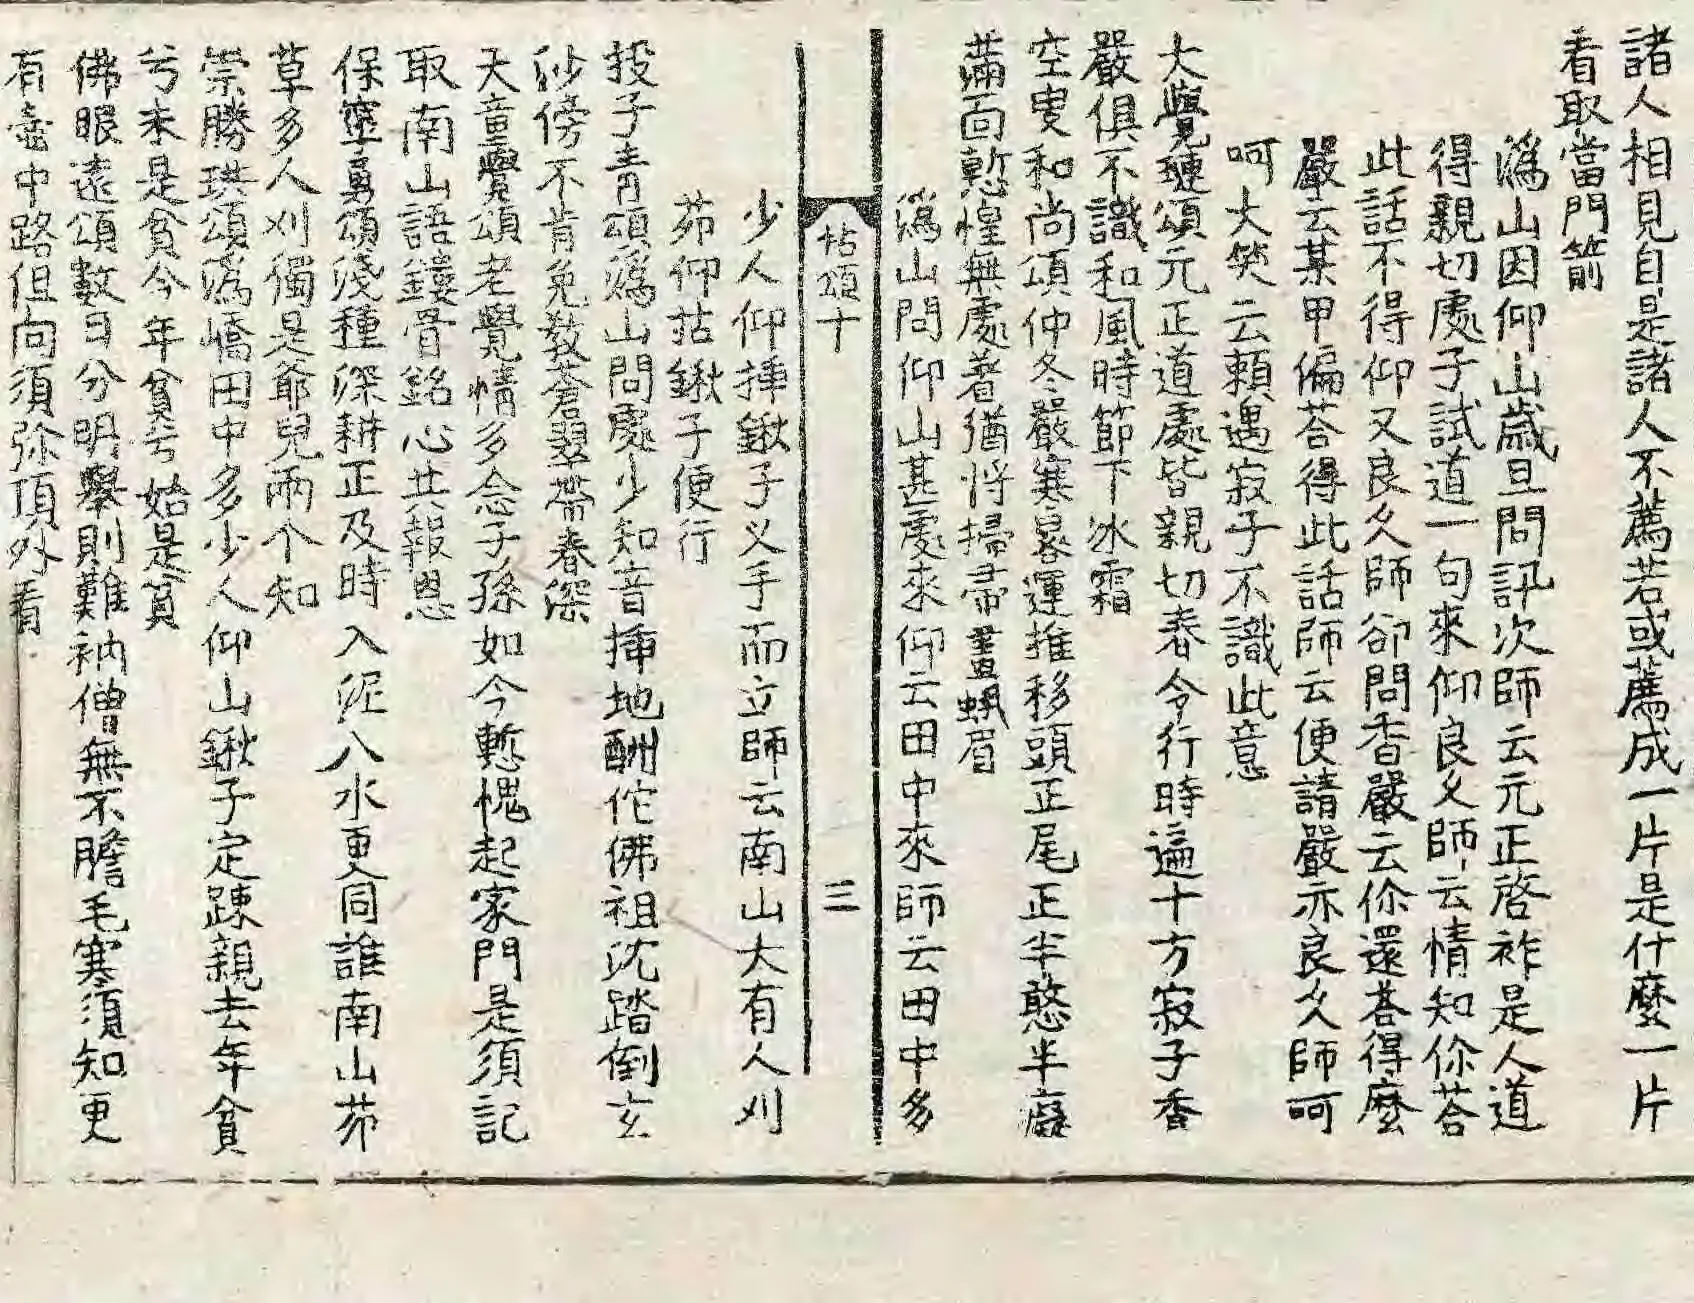 諸人相見自是諸人不薦若或薦成一片是什麽一片
看取當門箭
潙山因仰山歲旦問訊次師云元正啓祚是人道
得親切處子試道一句來仰良久師云情知你荅
此話不得仰又良久師卻問香嚴云你還荅得麽
嚴云某甲偏荅得此話師云便請嚴亦良久師呵
呵大笑云頼遇寂子不識此意
大覺璉頌元正道處皆親切春令行時遍十方寂子香
嚴俱不識和風時節下氷霜
空叟和尚頌仲冬嚴寒晷運推移頭正尾正半憨半癡
滿面慙惶無處着猶將掃帚畫蛾眉
潙山問仰山甚處來仰云田中來師云田中多
拈頌十 三
少人仰揷鍬子义手而立師云南山大有人刈
茆仰拈鍬子便行
投子靑頌潙山問處少知音揷地酬佗佛祖沈踏倒玄
沙傍不肯免教蒼翠帶春深
天童覺頌老覺情多念子孫如今慙愧起家門是須記
取南山語鏤骨銘心共報恩
保寧勇頌淺種深耕正及時入泥入水更同誰南山茆
草多人刈獨是爺兒兩个知
崇勝珙頌潙嶠田中多少人仰山鍬子定踈親去年貧
兮未是貧今年貧兮始是貧
佛眼遠頌數目分明擧則難衲僧無不膽毛寒須知更
有壺中路但向須弥頂外看